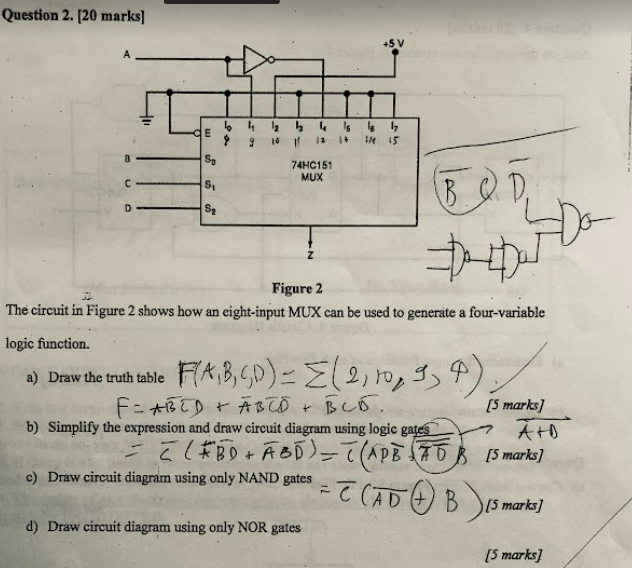 Question 2. [20 marks]
+5 V
A
I₀ I₁ I₂ I₃ I₄ I₅ I₆ I₇
E
9 10 11 12 14 15
B S₀
74HC151
MUX
C S₁
D S₂
Z
B̅ D̅
Figure 2
The circuit in Figure 2 shows how an eight-input MUX can be used to generate a four-variable
logic function.
a) Draw the truth table F(A,B,C,D) = Σ(2,10,9,
[5 marks]
b) Simplify the expression and draw circuit diagram using logic gates
[5 marks]
c) Draw circuit diagram using only NAND gates
[5 marks]
d) Draw circuit diagram using only NOR gates
[5 marks]